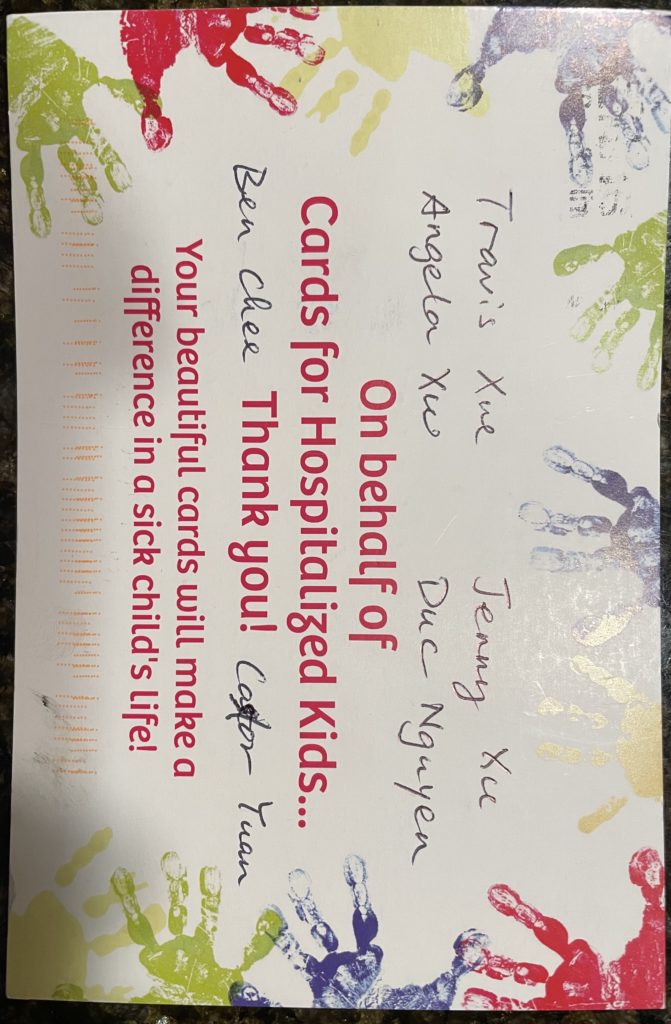 Travis Xue Jenny Xue
Angela Xu Duc Nguyen
On behalf of
Cards for Hospitalized Kids...
Ben Chee Thank you! Castor Yuan
Your beautiful cards will make a
difference in a sick child's life!